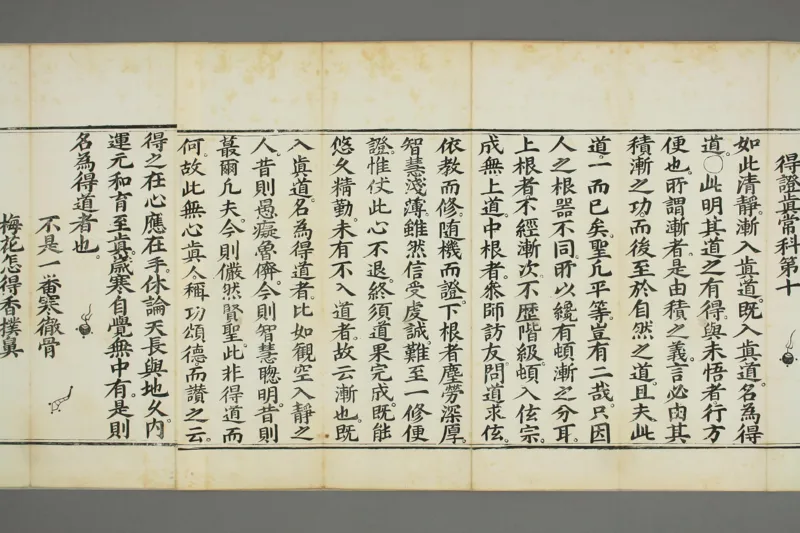 得證眞常科第十
如此清靜漸入眞道。既入眞道。名為得
道。〇此明其道之有得與未悟者。行方
便也。所謂漸者。是由積之義。言必由其
積漸之功。而後至於自然之道。且夫此
道。一而已矣。聖凡平等。豈有二哉。只因
人之根器不同。所以纔有頓漸之分耳。
上根者。不經漸次。不歷階級。頓入玄宗。
成無上道。中根者。叅師訪友。問道求玄。
依教而修。随機而證。下根者。塵勞深厚。
智慧淺薄。雖然信受虔誠。難至一修便
證。惟仗此心不退。終須道果完成。既能
悠久精勤。未有不入道者。故云漸也。既
入眞道。名為得道者。比如觀空入靜之
人。昔則愚癡魯儕。今則智慧聰明。昔則
蕞爾凡夫。今則儼然賢聖。此非得道而
何。故此無心眞人。稱功頌德而讚之云。
得之在心應在手。休論天長與地久。内
運元和育至眞。歲寒自覺無中有。是則
名為得道者也。
不是一畨寒徹骨
梅花怎得香撲鼻